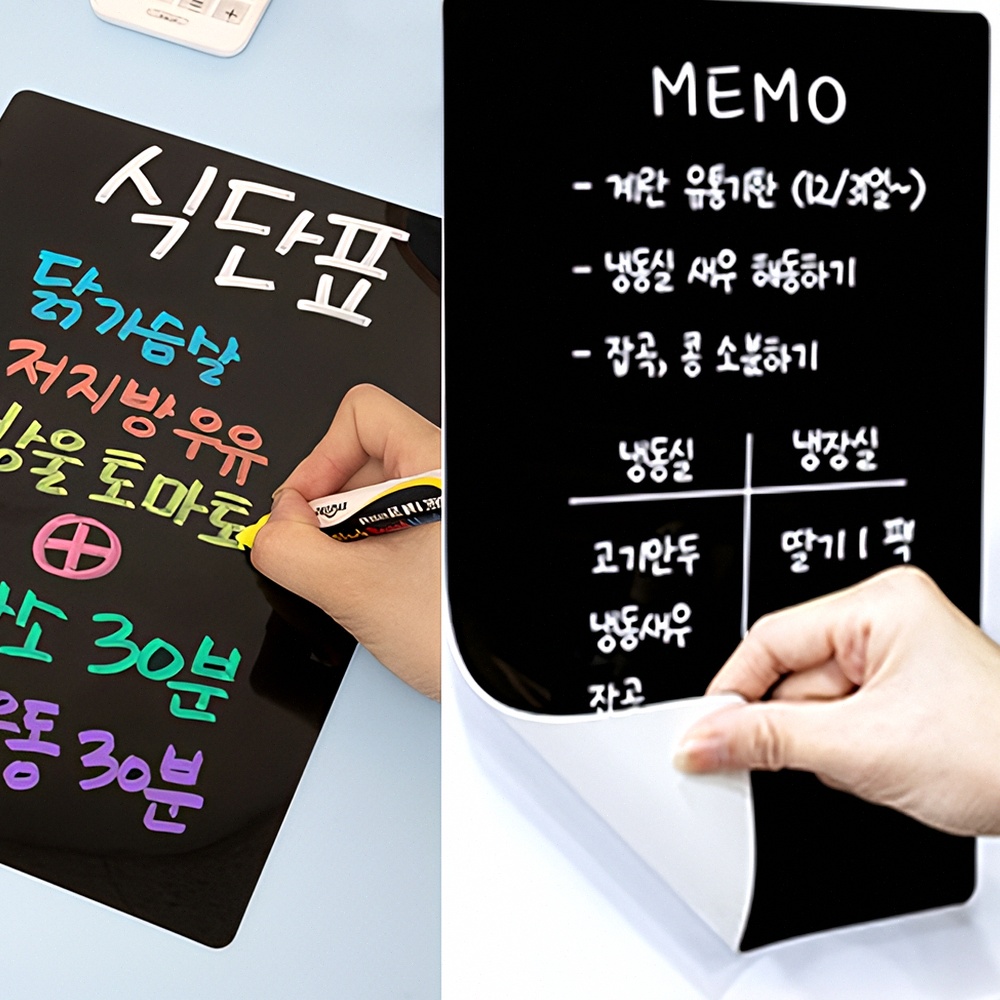 식단표
닭가슴살
저지방우유
방울토마토
30분
30분
MEMO
- 계란 유통기한 (12/31일~)
- 냉동실 새우 해동하기
- 잡곡, 콩 소분하기
냉동실 냉장실
고기만두 딸기 1 팩
냉동새우
잡곡